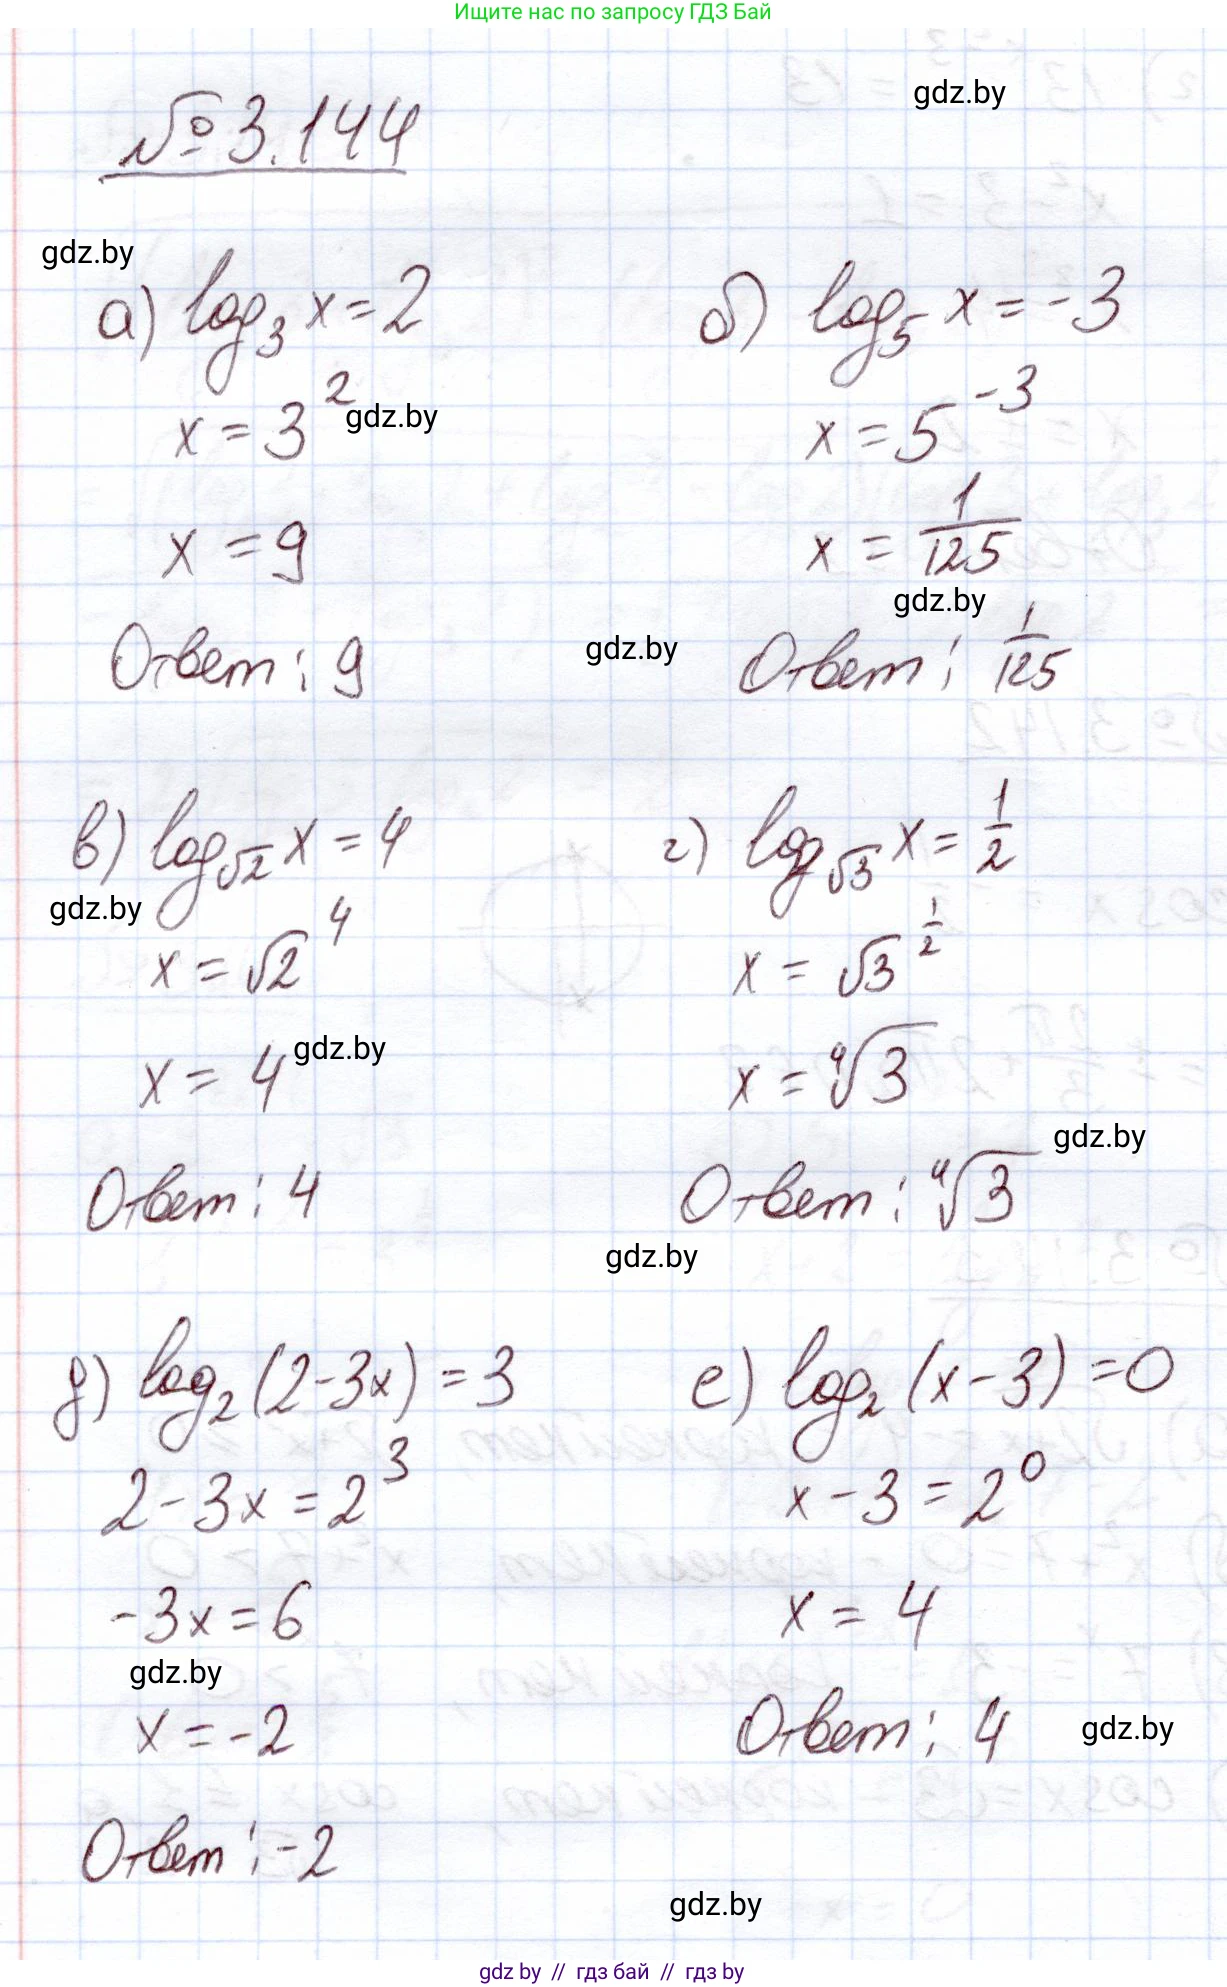 Ищите нас по запросу ГДЗ Бай
gdz.by
№ 3.144
gdz.by
а) log₃ x = 2
x = 3²
gdz.by
x = 9
Ответ: 9
б) log₅ x = -3
x = 5⁻³
x = 1/125
gdz.by
Ответ: 1/125
gdz.by
в) log_√2 x = 4
gdz.by
x = √2⁴
x = 4
gdz.by
Ответ: 4
г) log_√3 x = 1/2
x = √3^(1/2)
x = ⁴√3
gdz.by
Ответ: ⁴√3
gdz.by
д) log₂ (2-3x) = 3
2-3x = 2³
-3x = 6
gdz.by
x = -2
Ответ: -2
е) log₂ (x-3) = 0
x-3 = 2⁰
x = 4
Ответ: 4
gdz.by
gdz.by
gdz.by // гдз бай // гдз by